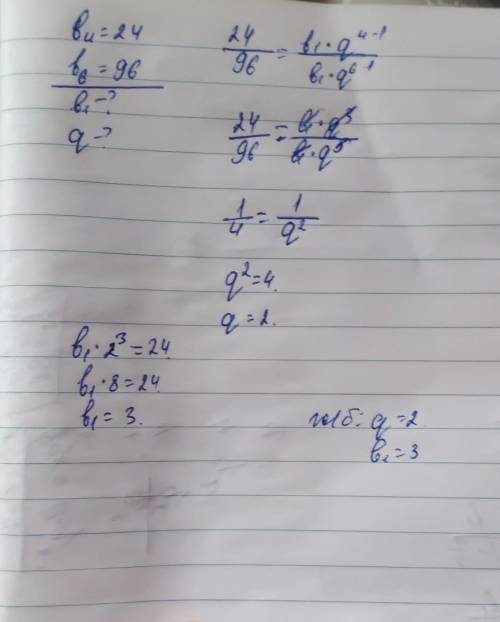 b₄ = 24
b₆ = 96
b₁ - ?
q - ?
24/96 = b₁·q⁴⁻¹/b₁·q⁶⁻¹
24/96 = b₁·q³/b₁·q⁵
1/4 = 1/q²
q² = 4.
q = 2.
b₁·2³ = 24.
b₁·8 = 24.
b₁ = 3.
q = 2
b₁ = 3